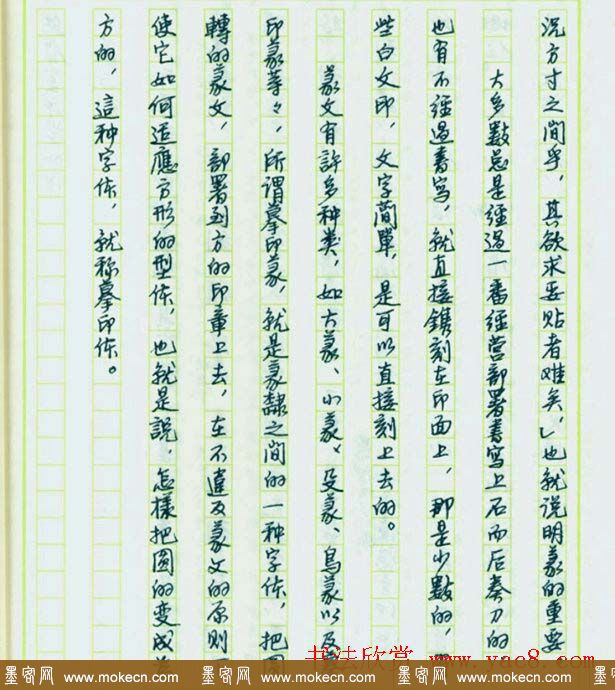 況方寸之间乎,其欲求妥贴者难矣,」也就说明篆的重要
大多數总是经過一番经营部署書寫上石而后奏刀的
也有不经過書写,就直接鐫刻在印面上,那是少數的,
些白文印,文字简單,是可以直接刻上去的。
篆文有許多种类,如大篆、小篆、殳篆、鳥篆以及
印篆等々,所谓摹印篆,就是篆隸之间的一种字体,把圓
轉的篆文,部署到方的印章上去,在不違反篆文的原则
使它如何适應方形的型体,也就是説,怎樣把圓的变成
方的,這种字体,就称摹印体。
书法欣赏 www.yac8.com
墨客网 www.mokecn.com 墨客网 www.mokecn.com 墨客网 www.mokecn.com